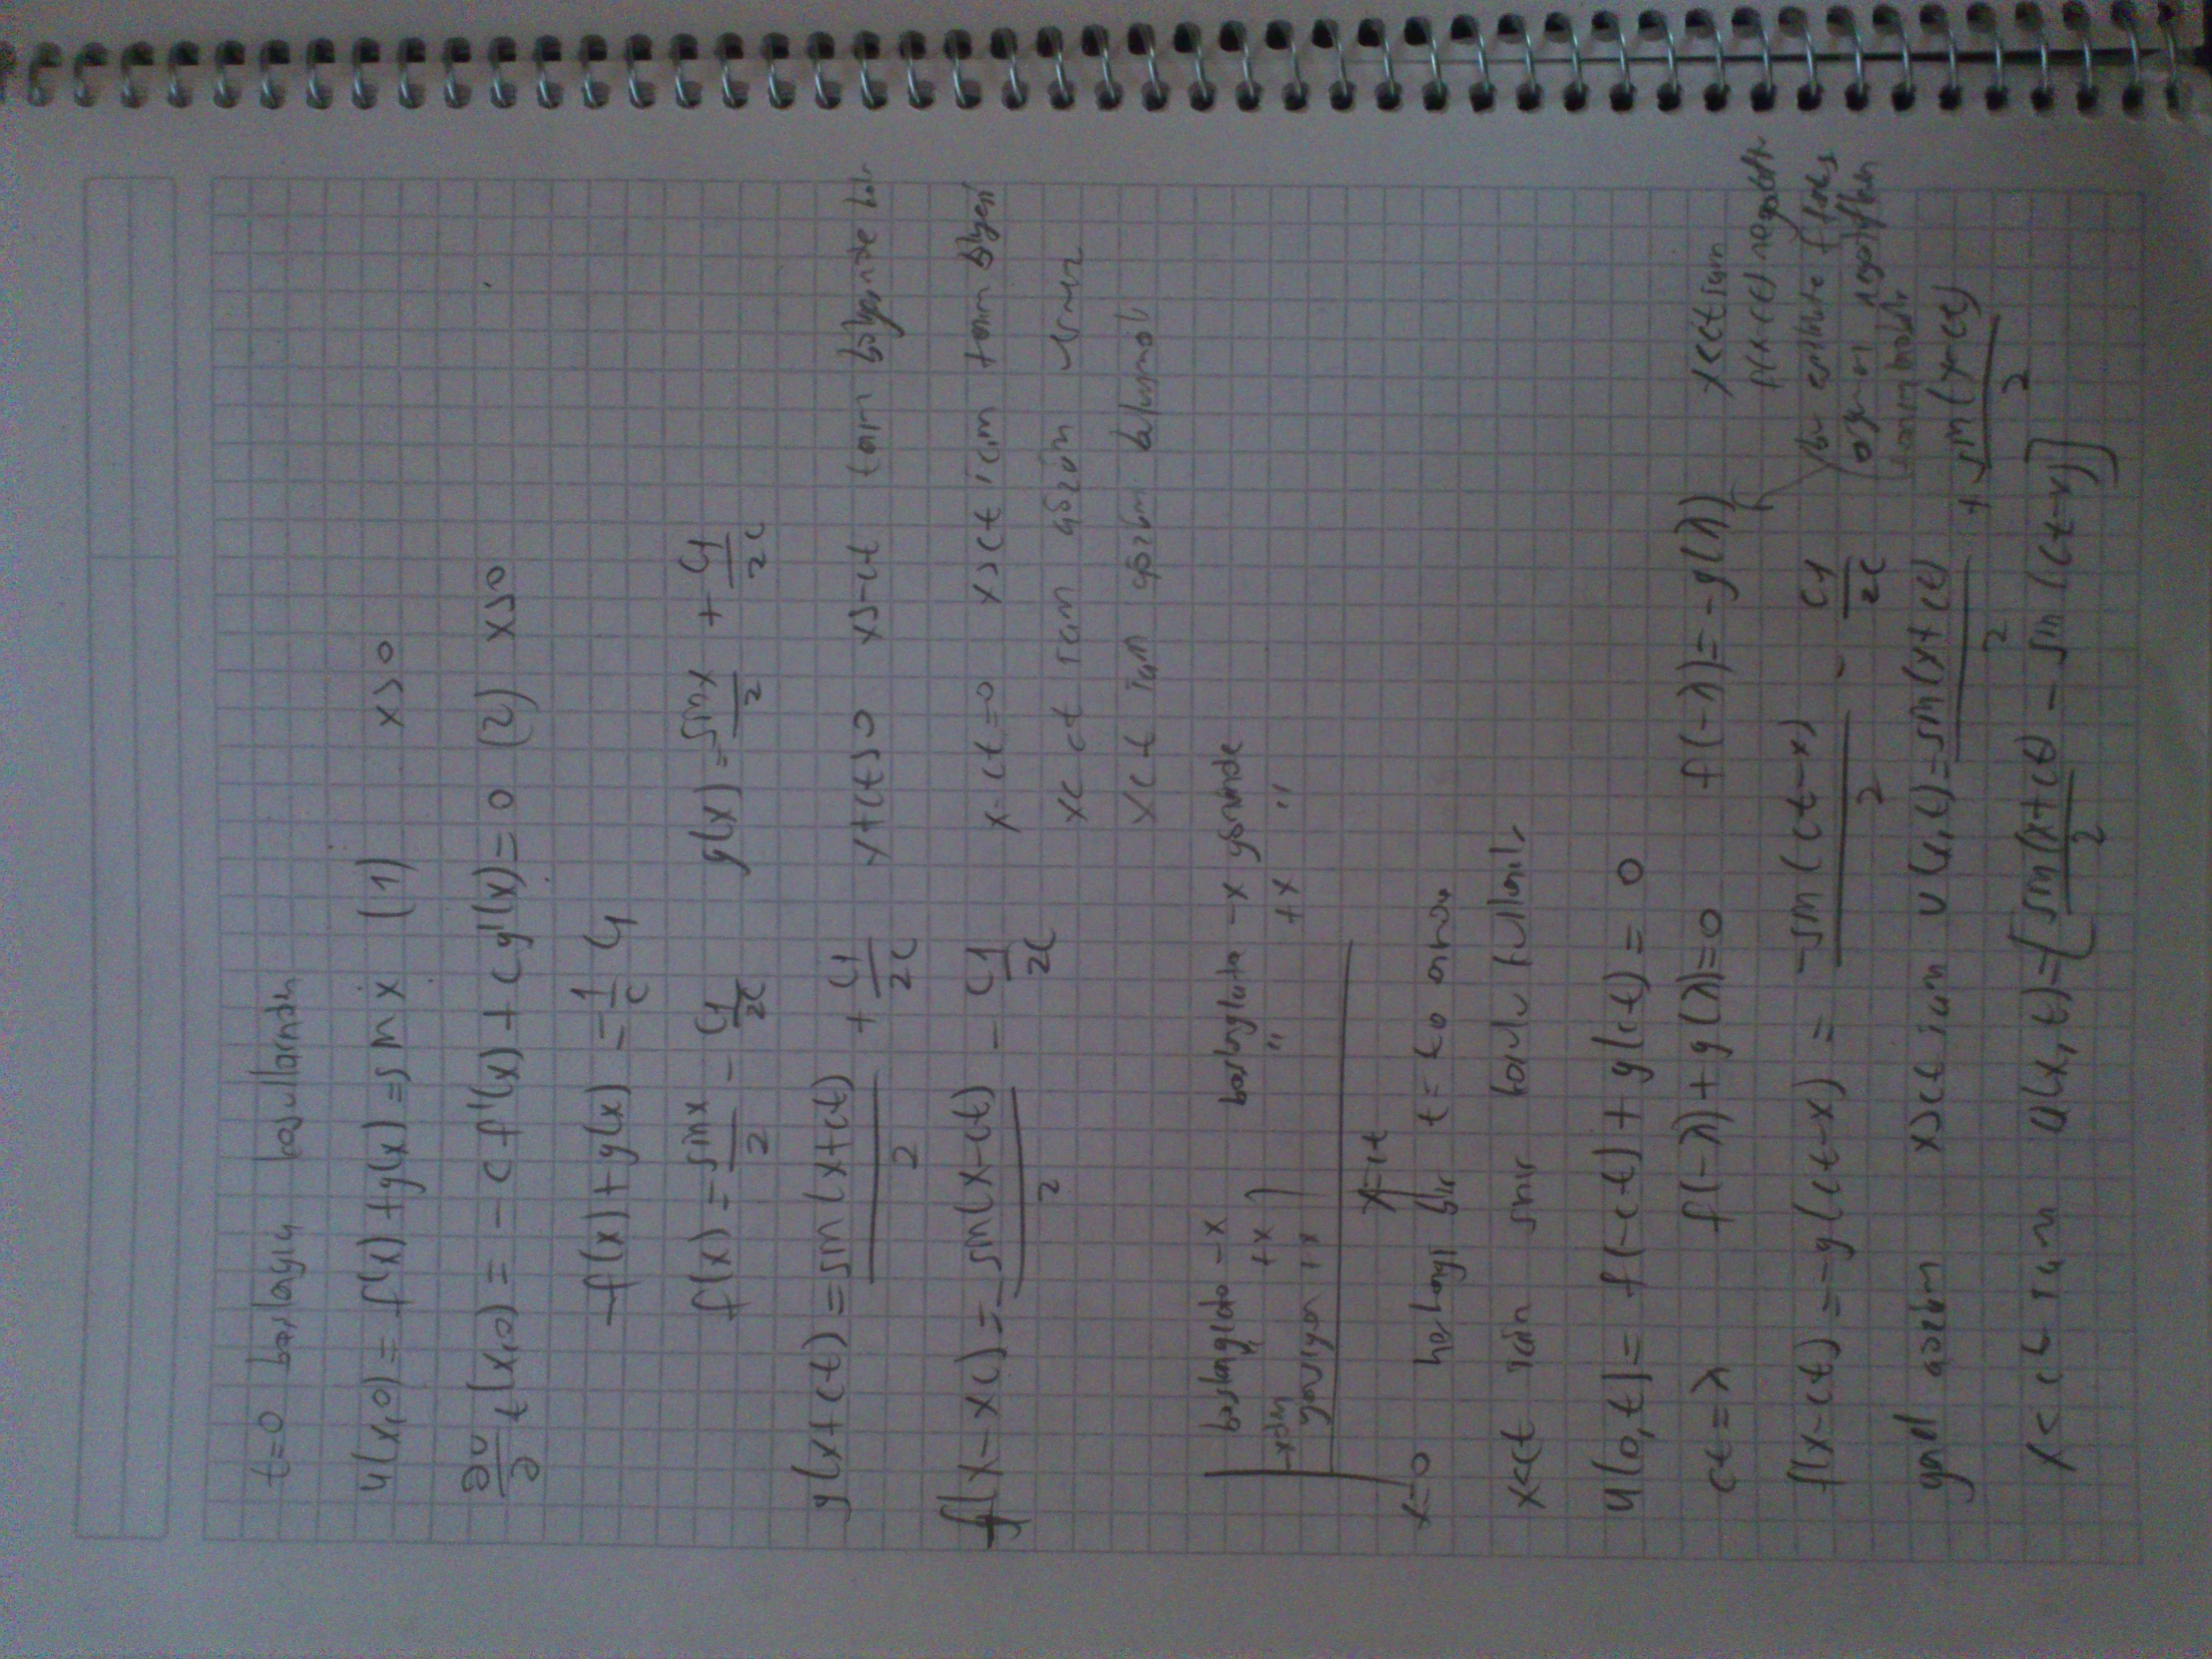 t=0 başlangıç koşullarından
u(x,0) = f(x) + g(x) = sin x (1) x>0
∂u/∂t (x,0) = -c f'(x) + c g'(x) = 0 (2) x>0
-f(x) + g(x) = 1/c C1
f(x) = sinx/2 - C1/2c g(x) = sinx/2 + C1/2c
g(x+ct) = sin(x+ct)/2 + C1/2c x+ct>0 x>-ct tanım bölgesinde
f(x-xc) = sin(x-ct)/2 - C1/2c x-ct=0 x>ct için tanım bölgesi
x<ct için çözüm vermez
x<ct için çözüm bulunmalı
başlangıçta -x başlangıçta -x yönünde
" +x " +x "
yansıyan +x
x=ct
x=0 herhangi bir t=t0 anında
x<ct için sınır koşulu kullanılır
u(0,t) = f(-ct) + g(ct) = 0
ct = λ f(-λ) + g(λ) = 0 f(-λ) = -g(λ) x<ct için
f(x-ct) negatiftir
f(x-ct) = -g(ct-x) = -sin(ct-x)/2 - C1/2c
genel çözüm x>ct için u(x,t) = sin(x+ct)/2 + sin(x-ct)/2
x<ct için u(x,t) = [sin(x+ct)/2 - sin(ct-x)]